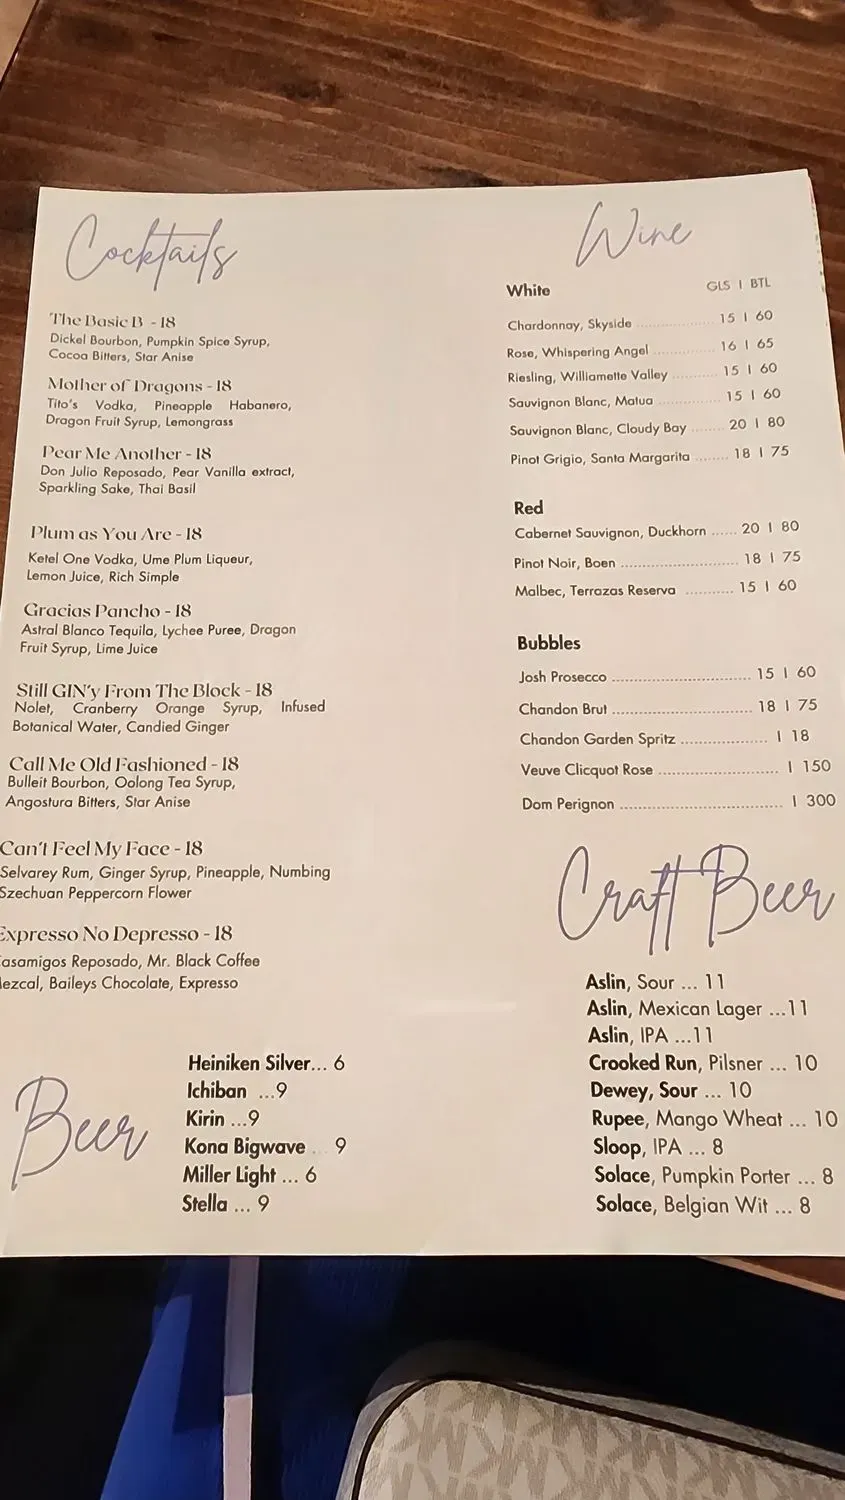 Cocktails
The Basic B - 18
Dickel Bourbon, Pumpkin Spice Syrup,
Cocoa Bitters, Star Anise
Mother of Dragons - 18
Tito's Vodka, Pineapple Habanero,
Dragon Fruit Syrup, Lemongrass
Pear Me Another - 18
Don Julio Reposado, Pear Vanilla extract,
Sparkling Sake, Thai Basil
Plum as You Are - 18
Ketel One Vodka, Ume Plum Liqueur,
Lemon Juice, Rich Simple
Gracias Pancho - 18
Astral Blanco Tequila, Lychee Puree, Dragon
Fruit Syrup, Lime Juice
Still GIN'y From The Block - 18
Nolet, Cranberry Orange Syrup, Infused
Botanical Water, Candied Ginger
Call Me Old Fashioned - 18
Bulleit Bourbon, Oolong Tea Syrup,
Angostura Bitters, Star Anise
Can't Feel My Face - 18
Selvarey Rum, Ginger Syrup, Pineapple, Numbing
Szechuan Peppercorn Flower
Expresso No Depresso - 18
Casamigos Reposado, Mr. Black Coffee
Mezcal, Baileys Chocolate, Expresso
Beer
Heiniken Silver... 6
Ichiban ...9
Kirin ...9
Kona Bigwave ... 9
Miller Light ... 6
Stella ... 9
Wine
White GLS | BTL
Chardonnay, Skyside ........ 15 | 60
Rose, Whispering Angel ........ 16 | 65
Riesling, Williamette Valley ........ 15 | 60
Sauvignon Blanc, Matua ........ 15 | 60
Sauvignon Blanc, Cloudy Bay ........ 20 | 80
Pinot Grigio, Santa Margarita ........ 18 | 75
Red
Cabernet Sauvignon, Duckhorn ...... 20 | 80
Pinot Noir, Boen ........ 18 | 75
Malbec, Terrazas Reserva ........ 15 | 60
Bubbles
Josh Prosecco ........ 15 | 60
Chandon Brut ........ 18 | 75
Chandon Garden Spritz ........ | 18
Veuve Clicquot Rose ........ | 150
Dom Perignon ........ | 300
Craft Beer
Aslin, Sour ... 11
Aslin, Mexican Lager ...11
Aslin, IPA ...11
Crooked Run, Pilsner ... 10
Dewey, Sour ... 10
Rupee, Mango Wheat ... 10
Sloop, IPA ... 8
Solace, Pumpkin Porter ... 8
Solace, Belgian Wit ... 8